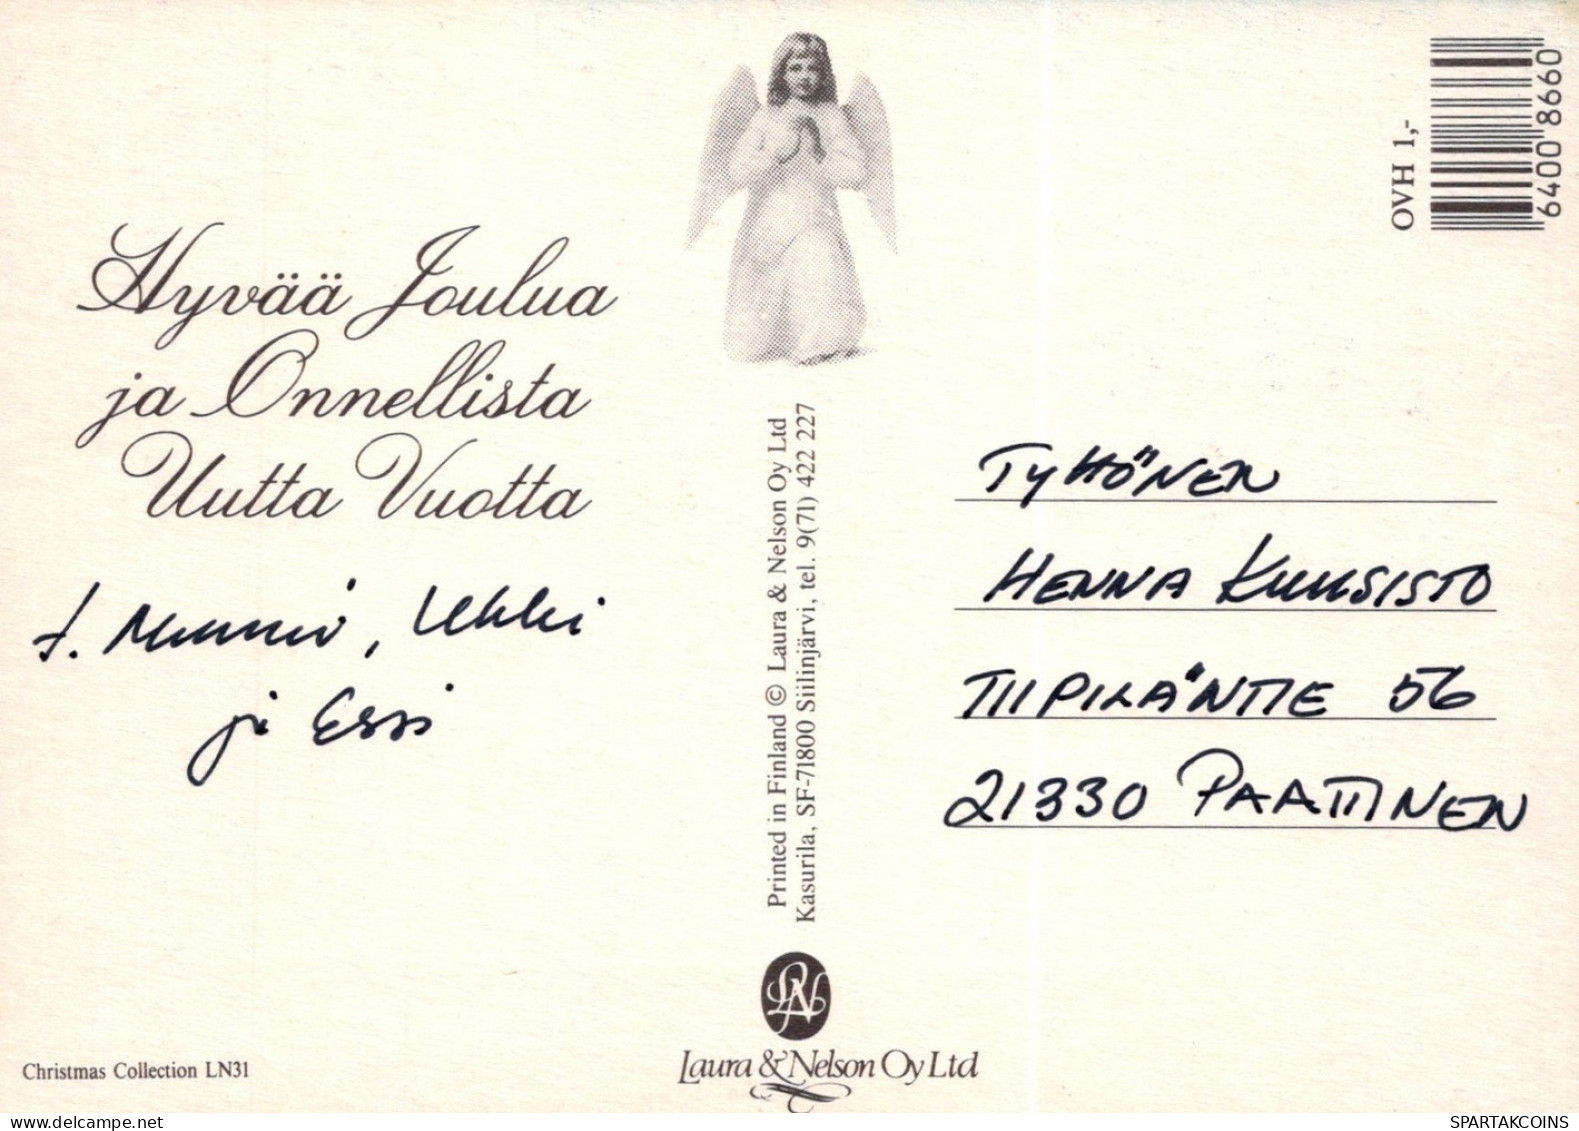 Hyvää Joulua
ja Onnellista
Uutta Vuotta
t. Mummi, Ukki
ja Essi
Christmas Collection LN31
Printed in Finland © Laura & Nelson Oy Ltd
Kasurila, SF-71800 Siilinjärvi, tel. 9(71) 422 227
LN
Laura & Nelson Oy Ltd
OVH 1,-
6400 8660
TYHÖNEN
HENNA KUUSISTO
TIIPILÄNTIE 56
21330 PAATTINEN
SPARTAKCOINS